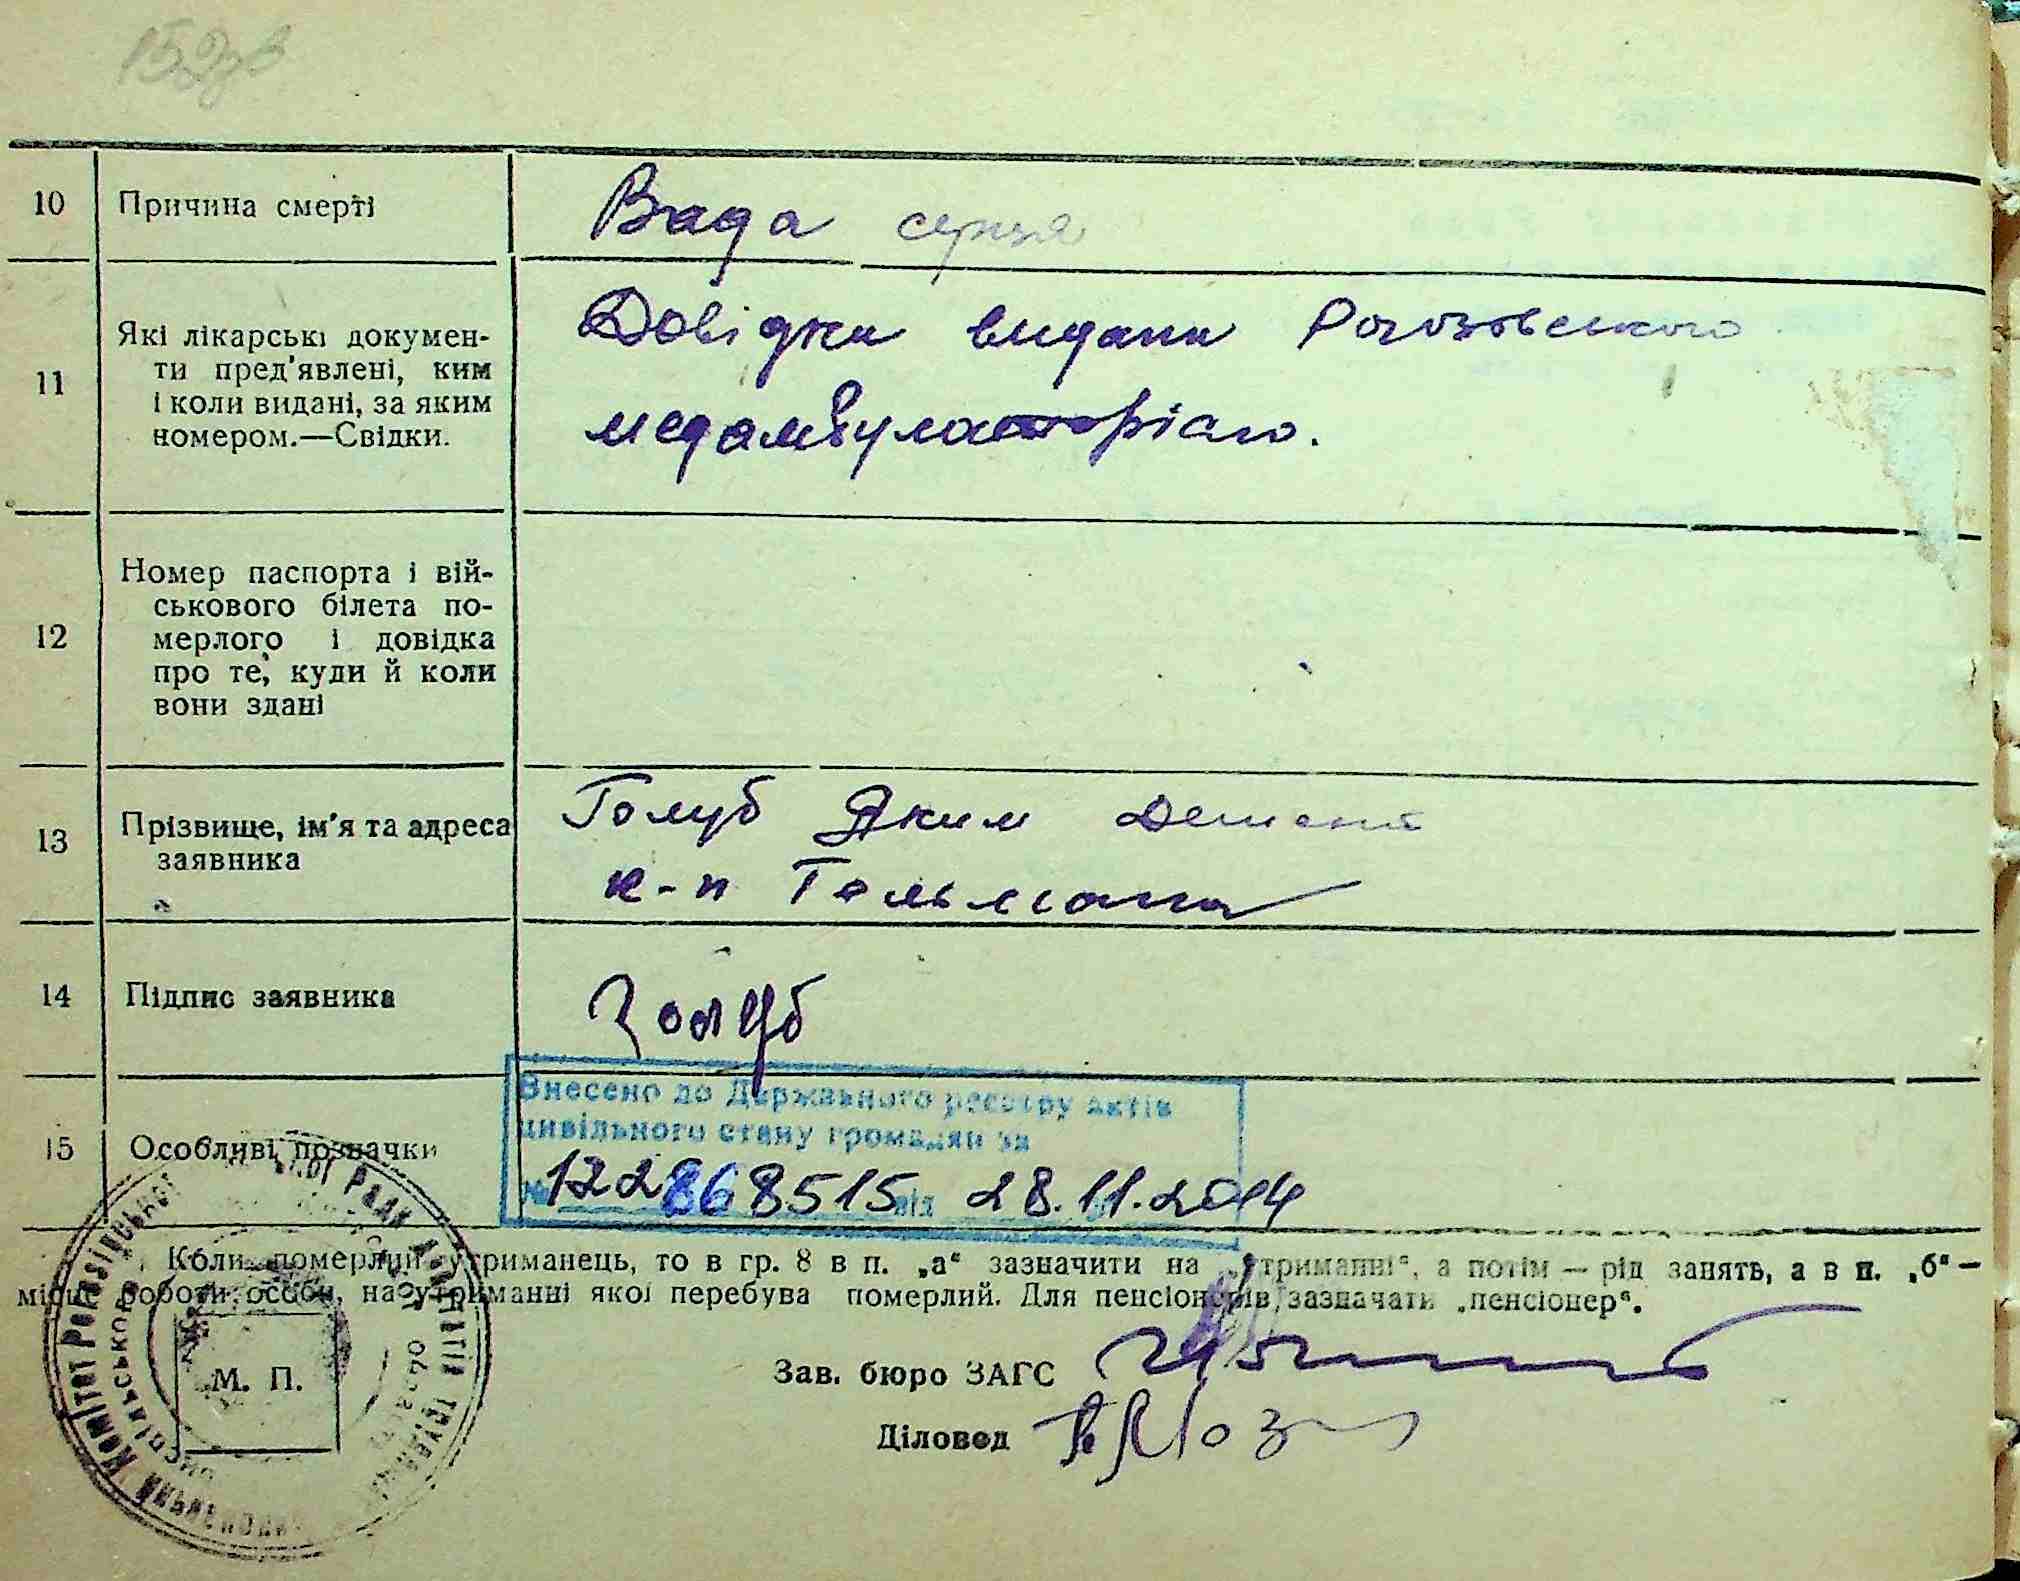 10 Причина смерті Вада серця
11 Які лікарські докумен-
ти пред'явлені, ким
і коли видані, за яким
номером.—Свідки.
Довідка видана Рогозовського
медамбулаторіаю.
12 Номер паспорта і вій-
ськового білета по-
мерлого і довідка
про те, куди й коли
вони здані
13 Прізвище, ім'я та адреса
заявника
Голуб Яким
к-п Тельмана
14 Підпис заявника Голуб
15 Особливі позначки
Внесено до Державного реєстру актів
цивільного стану громадян за
№ 122868515 від 28.11.2014
Коли померлий утриманець, то в гр. 8 в п. „а“ зазначити на „утриманні“, а потім — рід занять, а в п. „б“ —
місце роботи особи, на утриманні якої перебува померлий. Для пенсіонерів зазначати „пенсіонер“.
М. П.
Зав. бюро ЗАГС
Діловод